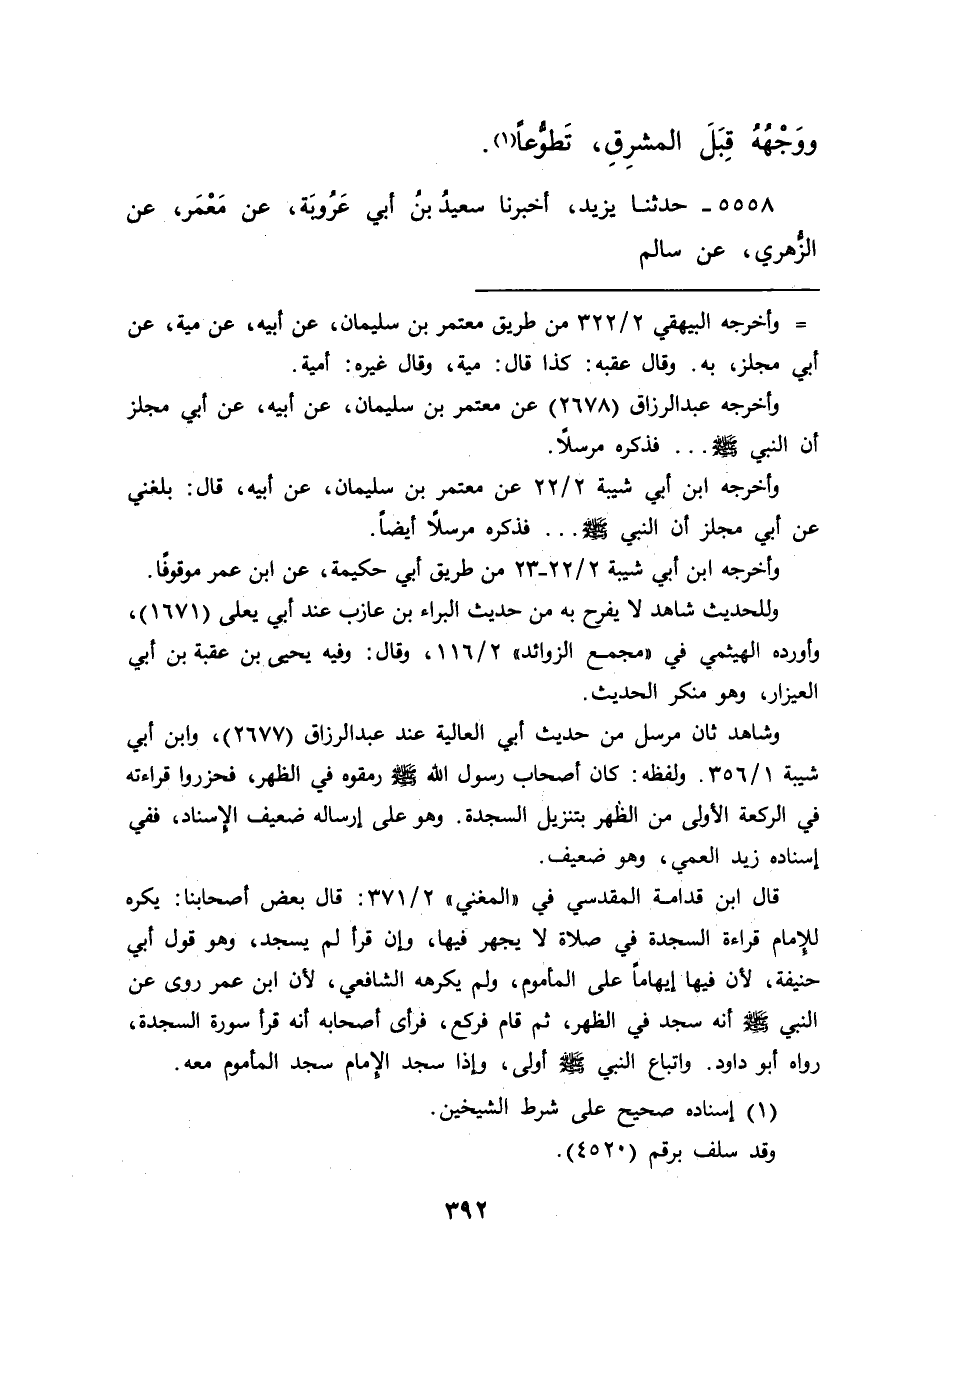 ووَجْهُهُ قِبَلَ المشرِقِ، تَطوُّعاً(١).
٥٥٥٨ـ حدثنا يزيد، أخبرنا سعيدُ بنُ أبي عَرُوبَة، عن مَعْمَر، عن
الزُّهري، عن سالم
= وأخرجه البيهقي ٣٢٢/٢ من طريق معتمر بن سليمان، عن أبيه، عن مية، عن
أبي مجلز، به. وقال عقبه: كذا قال: مية، وقال غيره: أمية.
وأخرجه عبدالرزاق (٢٦٧٨) عن معتمر بن سليمان، عن أبيه، عن أبي مجلز
أن النبي ﷺ... فذكره مرسلًا.
وأخرجه ابن أبي شيبة ٢٢/٢ عن معتمر بن سليمان، عن أبيه، قال: بلغني
عن أبي مجلز أن النبي ﷺ... فذكره مرسلًا أيضاً.
وأخرجه ابن أبي شيبة ٢٢/٢ـ٢٣ من طريق أبي حكيمة، عن ابن عمر موقوفًا.
وللحديث شاهد لا يفرح به من حديث البراء بن عازب عند أبي يعلى (١٦٧١)،
وأورده الهيثمي في «مجمع الزوائد» ١١٦/٢، وقال: وفيه يحيى بن عقبة بن أبي
العيزار، وهو منكر الحديث.
وشاهد ثان مرسل من حديث أبي العالية عند عبدالرزاق (٢٦٧٧)، وابن أبي
شيبة ٣٥٦/١. ولفظه: كان أصحاب رسول الله ﷺ رمقوه في الظهر، فحزروا قراءته
في الركعة الأولى من الظهر بتنزيل السجدة. وهو على إرساله ضعيف الإسناد، ففي
إسناده زيد العمي، وهو ضعيف.
قال ابن قدامة المقدسي في «المغني» ٣٧١/٢: قال بعض أصحابنا: يكره
للإمام قراءة السجدة في صلاة لا يجهر فيها، وإن قرأ لم يسجد، وهو قول أبي
حنيفة، لأن فيها إيهاماً على المأموم، ولم يكرهه الشافعي، لأن ابن عمر روى عن
النبي ﷺ أنه سجد في الظهر، ثم قام فركع، فرأى أصحابه أنه قرأ سورة السجدة،
رواه أبو داود. واتباع النبي ﷺ أولى، وإذا سجد الإمام سجد المأموم معه.
(١) إسناده صحيح على شرط الشيخين.
وقد سلف برقم (٤٥٢٠).
٣٩٢